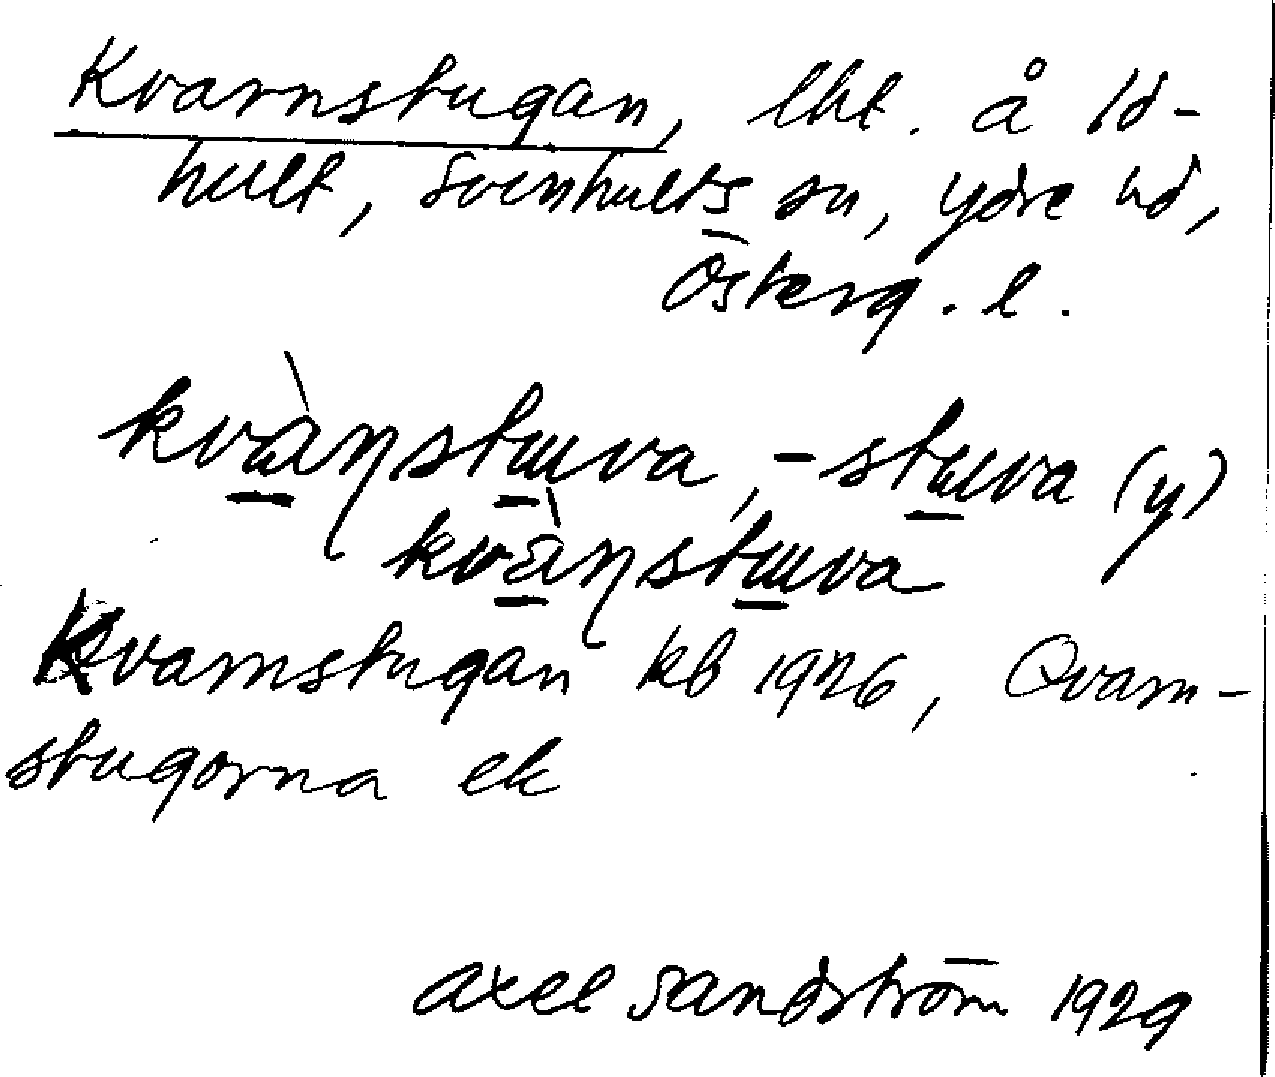 Kvarnstugan, lht. å Id-
hult, Svinhults sn, Ydre hd,
Österg. l.
kvàɳstuva, -stuva (y)
kvàɳstuva
Kvarnstugan kb 1926, Qvarn-
stugorna ek
Axel Sandström 1929